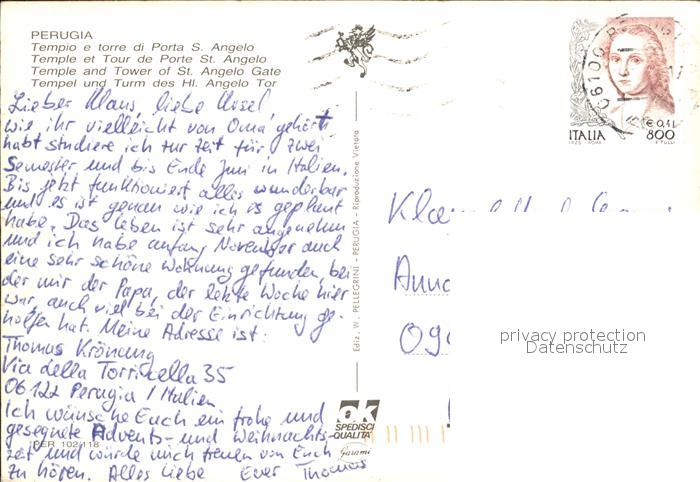 PERUGIA
Tempio e torre di Porta S. Angelo
Temple et Tour de Porte St. Angelo
Temple and Tower of St. Angelo Gate
Tempel und Turm des Hl. Angelo Tor
Lieber Klaus, liebe Ursel
wie ihr vielleicht von Oma gehört
habt studiere ich zur Zeit für zwei
Semester und bis Ende Juni in Italien.
Bis jetzt funktioniert alles wunderbar
und es ist genau wie ich es geplant
habe. Das Leben ist sehr angenehm
und ich habe anfang November auch
eine sehr schöne Wohnung gefunden, bei
der mir der Papa, der letzte Woche hier
war, auch viel bei der Einrichtung ge-
holfen hat. Meine Adresse ist:
Thomas Krönung
Via della Torricella 35
06122 Perugia / Italien
Ich wünsche Euch ein frohe und
gesegnete Advents- und Weihnachts-
zeit und würde mich freuen von Euch
zu hören. Alles Liebe Euer Thomas
PER 102/118
Ediz. W. PELLEGRINI - PERUGIA - Riproduzione Vietata
ok
SPEDISCI
QUALITÀ
Garami
ITALIA
€ 0,41
800
06100
09
privacy protection
Datenschutz